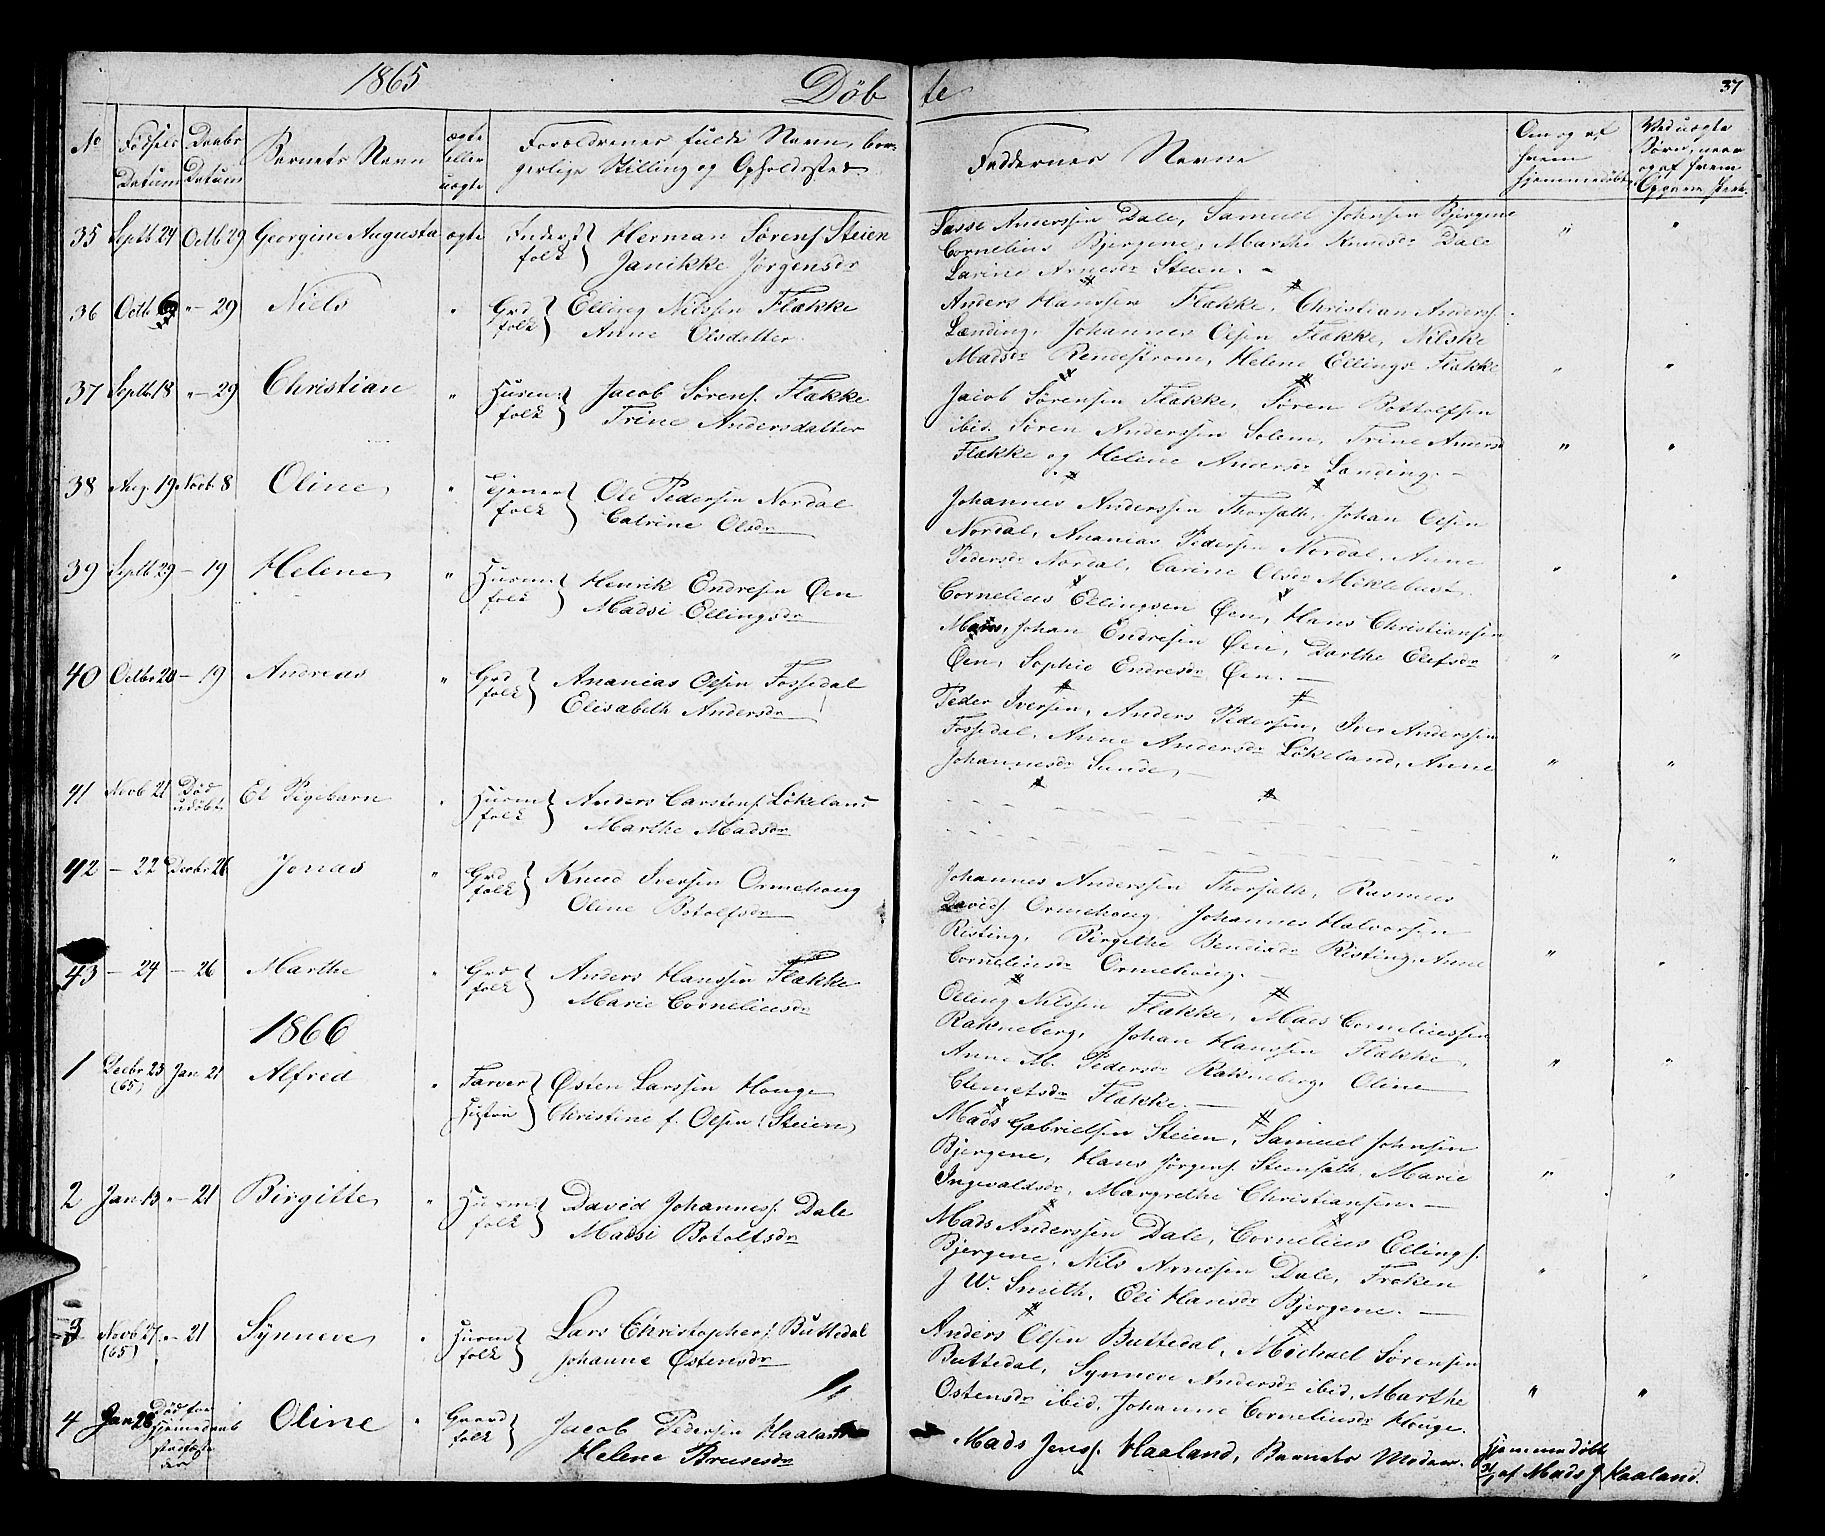 1865
Döbte
37
No
Fødsels Datum
Daabs Datum
Barnets Navn
ægte eller uægte
Forældrenes fulde Navn, borgerlige Stilling og Opholdssted
Faddernes Navne
Om og af hvem hjemmedöbt
35 Septb 24 Octb 29 Georgine Augusta ægte Inderst folk Herman Sørens. Steien
Janikke Jørgensdr
Lasse Anderssen Dale, Samuel Johnsen Bjergene
Cornelius Bjergene, Marthe Knudsdr Dale
Larine Arnesdr Steien. -
36 Octb 6 " - 29 Niels " Grd folk Elling Nilsen Flække
Anne Olsdatter
Anders Hanssen Flække, Christian Anders.
Lænding, Johannes Olsen Flække, Nilske
Madsdr Rendestrøm, Helene Ellingsdr Flække
37 Septb 18 " - 29 Christian " Husm folk Jacob Sørens. Flække
Trine Andersdatter
Jacob Sørensen Flække, Søren Bottolfsen
ibid. Søren Anderssen Solem, Trine Andersd
Flække og Helene Andersdr Lænding. -
38 Aug. 19 Novb 8 Oline " Tjener folk Ole Pedersen Nordal
Catrine Olsdr
Johannes Anderssen Thorsæth, Johan Olsen
Nordal, Ananias Pedersen Nordal, Anne
Pedersdr Nordal, Carine Olsdr Möklebust.
39 Septb 29 - 19 Helene " Husm folk Henrik Endresen Øen
Madsi Ellingsdr
Cornelius Ellingsen Øen, Hans Christiansen
Johan Endresen Øen, Dorthe Elefsdr
Øen, Sophie Endresdr Øen. -
40 Octbr 20 - 19 Andreas " Grd folk Ananias Olsen Fossedal
Elisabeth Andersdr
Peder Iversen, Anders Pedersen, Iver Anderssen
Fossedal, Anne Andersdr Lökeland, Anne
Johannesdr Sunde, -
41 Novb 21 Död udöbt Et Pigebarn " Husm folk Anders Carstens. Lökeland
Marthe Madsdr
42 - 22 Decbr 26 Jonas " Grd folk Knud Iversen Ormehoug
Oline Botolfsdr
Johannes Anderssen Thorsæth, Rasmus
Davids. Ormehoug, Johannes Halvorsen
Risting, Birgithe Bendixdr Risting, Anne
Corneliusdr Ormehoug. -
43 - 24 - 26 Marthe " Grd folk Anders Hanssen Flække
Marie Corneliusdr
Elling Nilssen Flække, Mads Corneliussen
Rakneberg, Johan Hanssen Flække,
Anne M. Pedersdr Rakneberg, Oline
Clemetsdr Flække. -
1866
1 Decbr 23 (65) Jan 21 Alfred " Farver Hustru Østen Larssen Houge
Christine f. Olsen (Steien)
Mads Gabrielsen Steien, Samuel Johnsen
Bjergene, Hans Jørgens. Steensæth, Marie
Ingevaldsdr, Margrethe Christiansen. -
2 Jan 13 " - 21 Birgitte " Husm folk David Johanness. Dale
Madsi Botolfsdr
Mads Anderssen Dale, Cornelius Ellings.
Bjergene, Nils Arnesen Dale, Frøken
J W. Smith, Eli Hansdr Bjergene. -
3 Novb 27 (65) " - 21 Synneve " Husm folk Lars Christophers. Buttedal
Johanne Østensdr
Anders Olsen Buttedal, Michael Sørensen
Buttedal, Synneve Andersdr ibid, Marthe
Ostensdr ibid, Johanne Corneliusdr Houge.
4 Jan 28 Død før Oline " Gaard folk Jacob Pedersen Haaland
Helene Brusesdr
Mads Jenss. Haaland, Barnets Moder.
Hjemmedöbt
31/1 af Mads J Haaland.